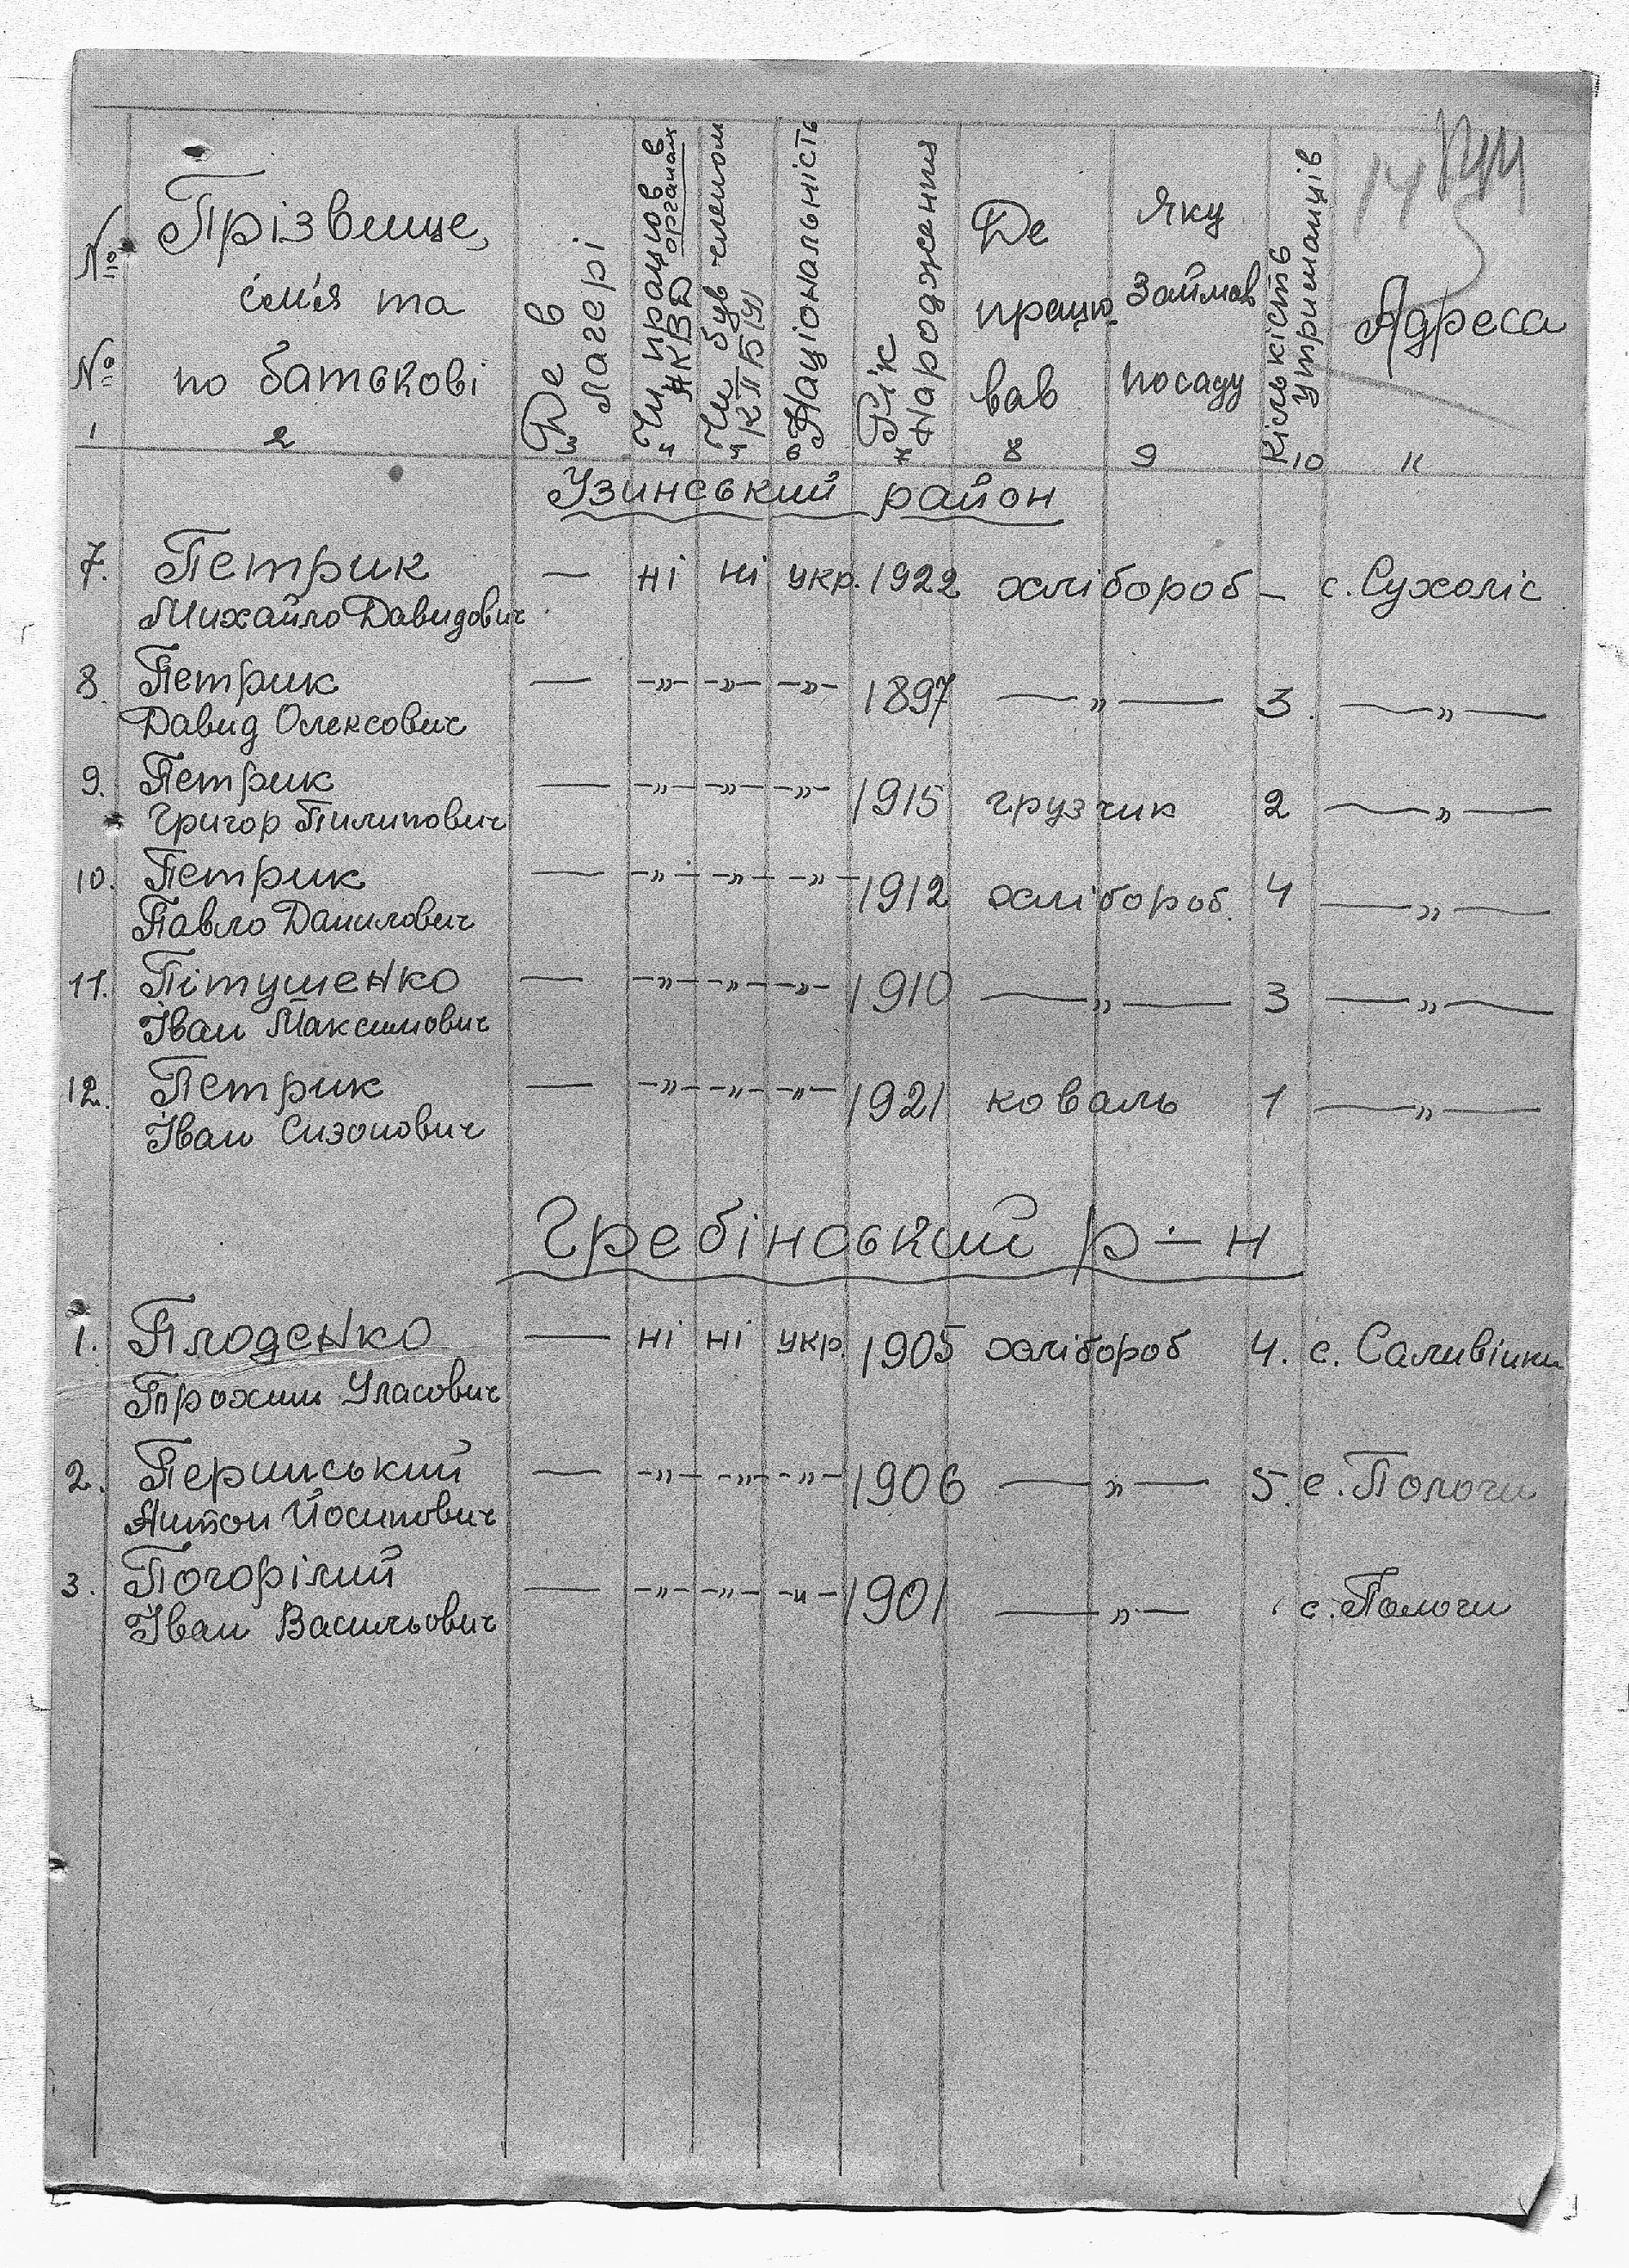 № Прізвище, ім'я та по батькові
Де в лагері
Чи працюв в НКВД органах
Чи був членом КПБ(У)
Національність
Рік Народження
Де працював
Яку займав посаду
Кількість Утриманців
Адреса
14
1 2 3 4 5 6 7 8 9 10 11
Узинський район
7. Петрик — ні ні укр. 1922 хлібороб — с. Сухоліс
Михайло Давидович
8. Петрик — —"— —"— —"— 1897 —"— 3. —"—
Давид Олексович
9. Петрик — —"— —"— —"— 1915 грузчик 2 —"—
Григор Пилипович
10. Петрик — —"— —"— —"— 1912 хлібороб. 4 —"—
Павло Данилович
11. Пітушенко — —"— —"— —"— 1910 —"— 3 —"—
Іван Максимович
12. Петрик — —"— —"— —"— 1921 коваль 1 —"—
Іван Сизонович
Гребінський р-н
1. Плоденко — ні ні укр. 1905 хлібороб 4. с. Саливінки
Трохим Уласович
2. Перинський — —"— —"— —"— 1906 —"— 5. с. Пологи
Антон Йосипович
3. Погорілий — —"— —"— —"— 1901 —"— с. Пологи
Іван Васильович